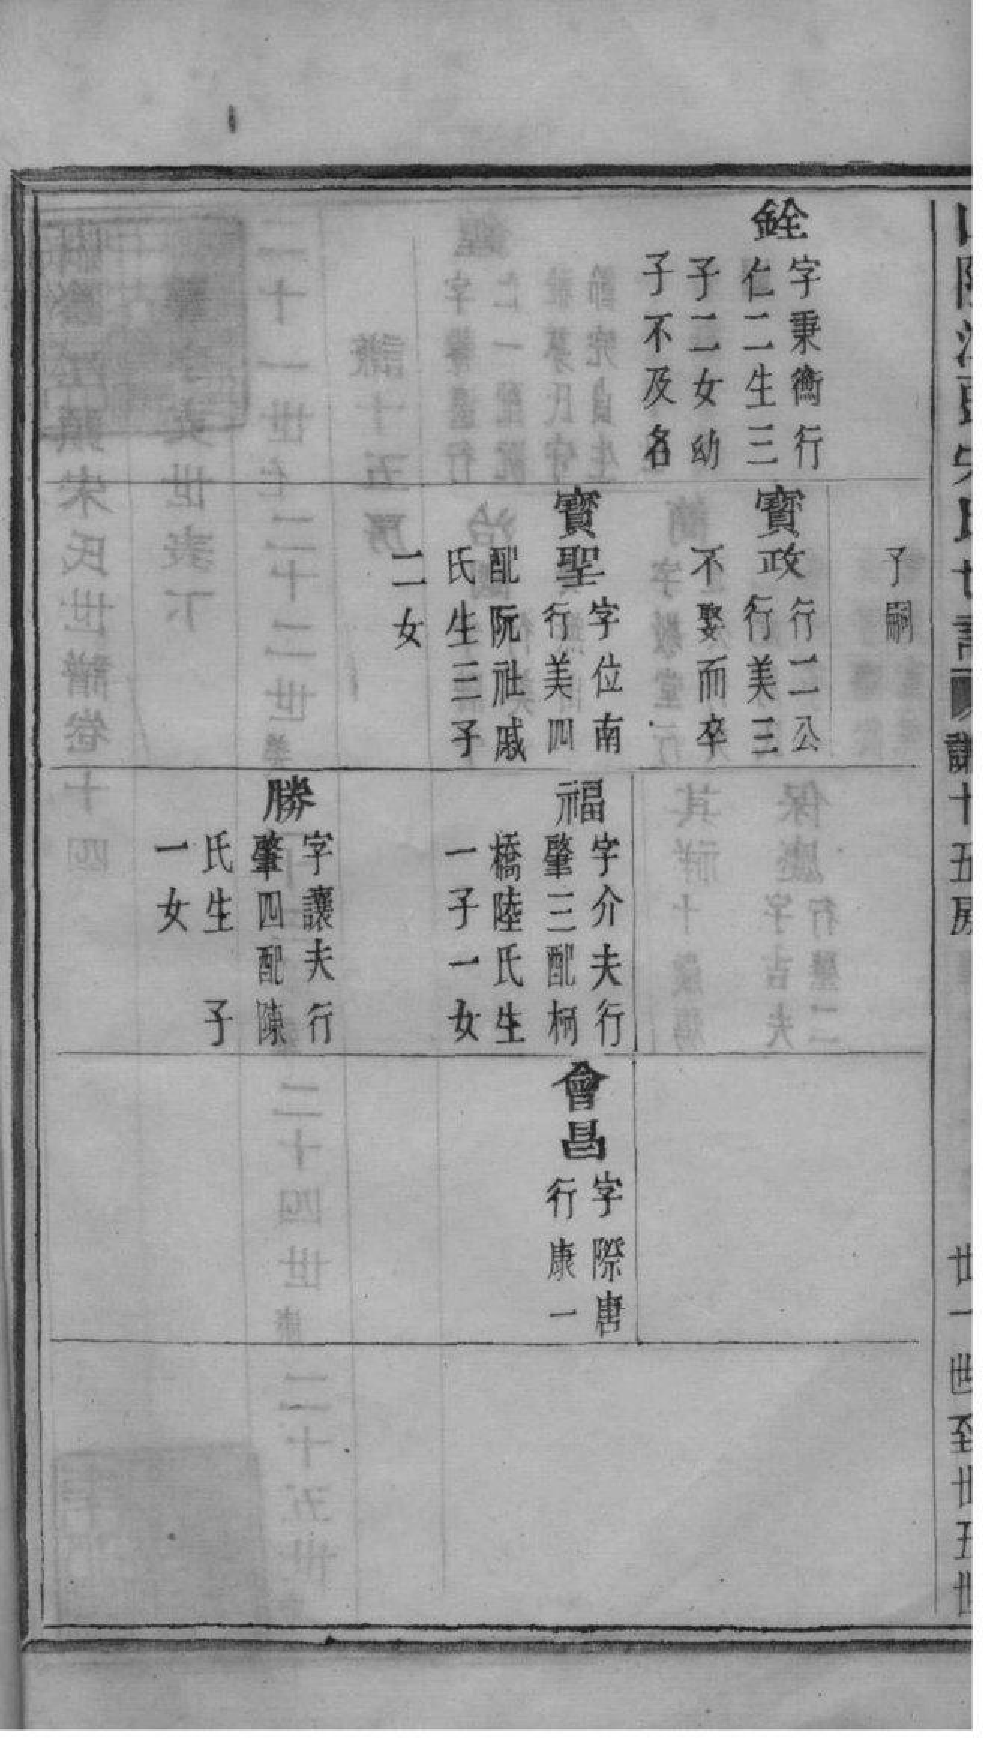 山陰江頭宋氏世譜 謙十五房 廿一世至廿五世
銓
字秉衡行
仁二生三
子二女幼
子不及名
子嗣
寳政
行二公
行美三
不娶而卒
寳聖
字位南
行美四
配阮社戚
氏生三子
二女
福
字介夫行
肇三配柯
橋陸氏生
一子一女
勝
字讓夫行
肇四配陳
氏生 子
一女
會昌
字際唐
行康一